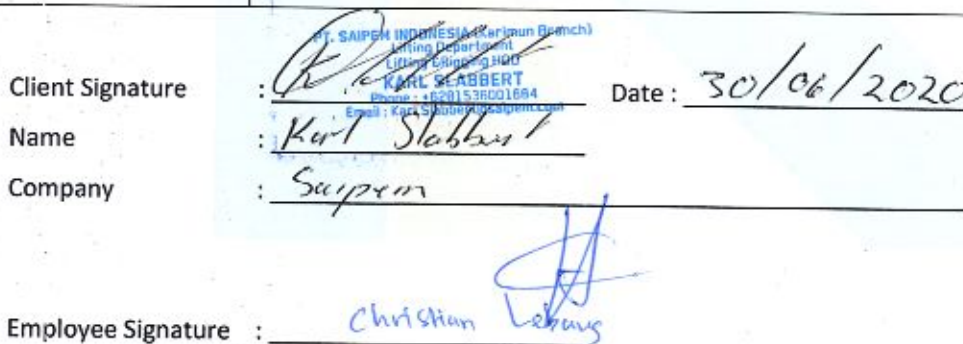 PT. SAIPEM INDONESIA (Karimun Branch)
Lifting Department
Lifting & Rigging HOD
KARL SLABBERT
Phone : +6281536001684
Client Signature :
Date : 30/06/2020
Name : Karl Slabbert
Company : Saipem
Employee Signature : Christian Lebang